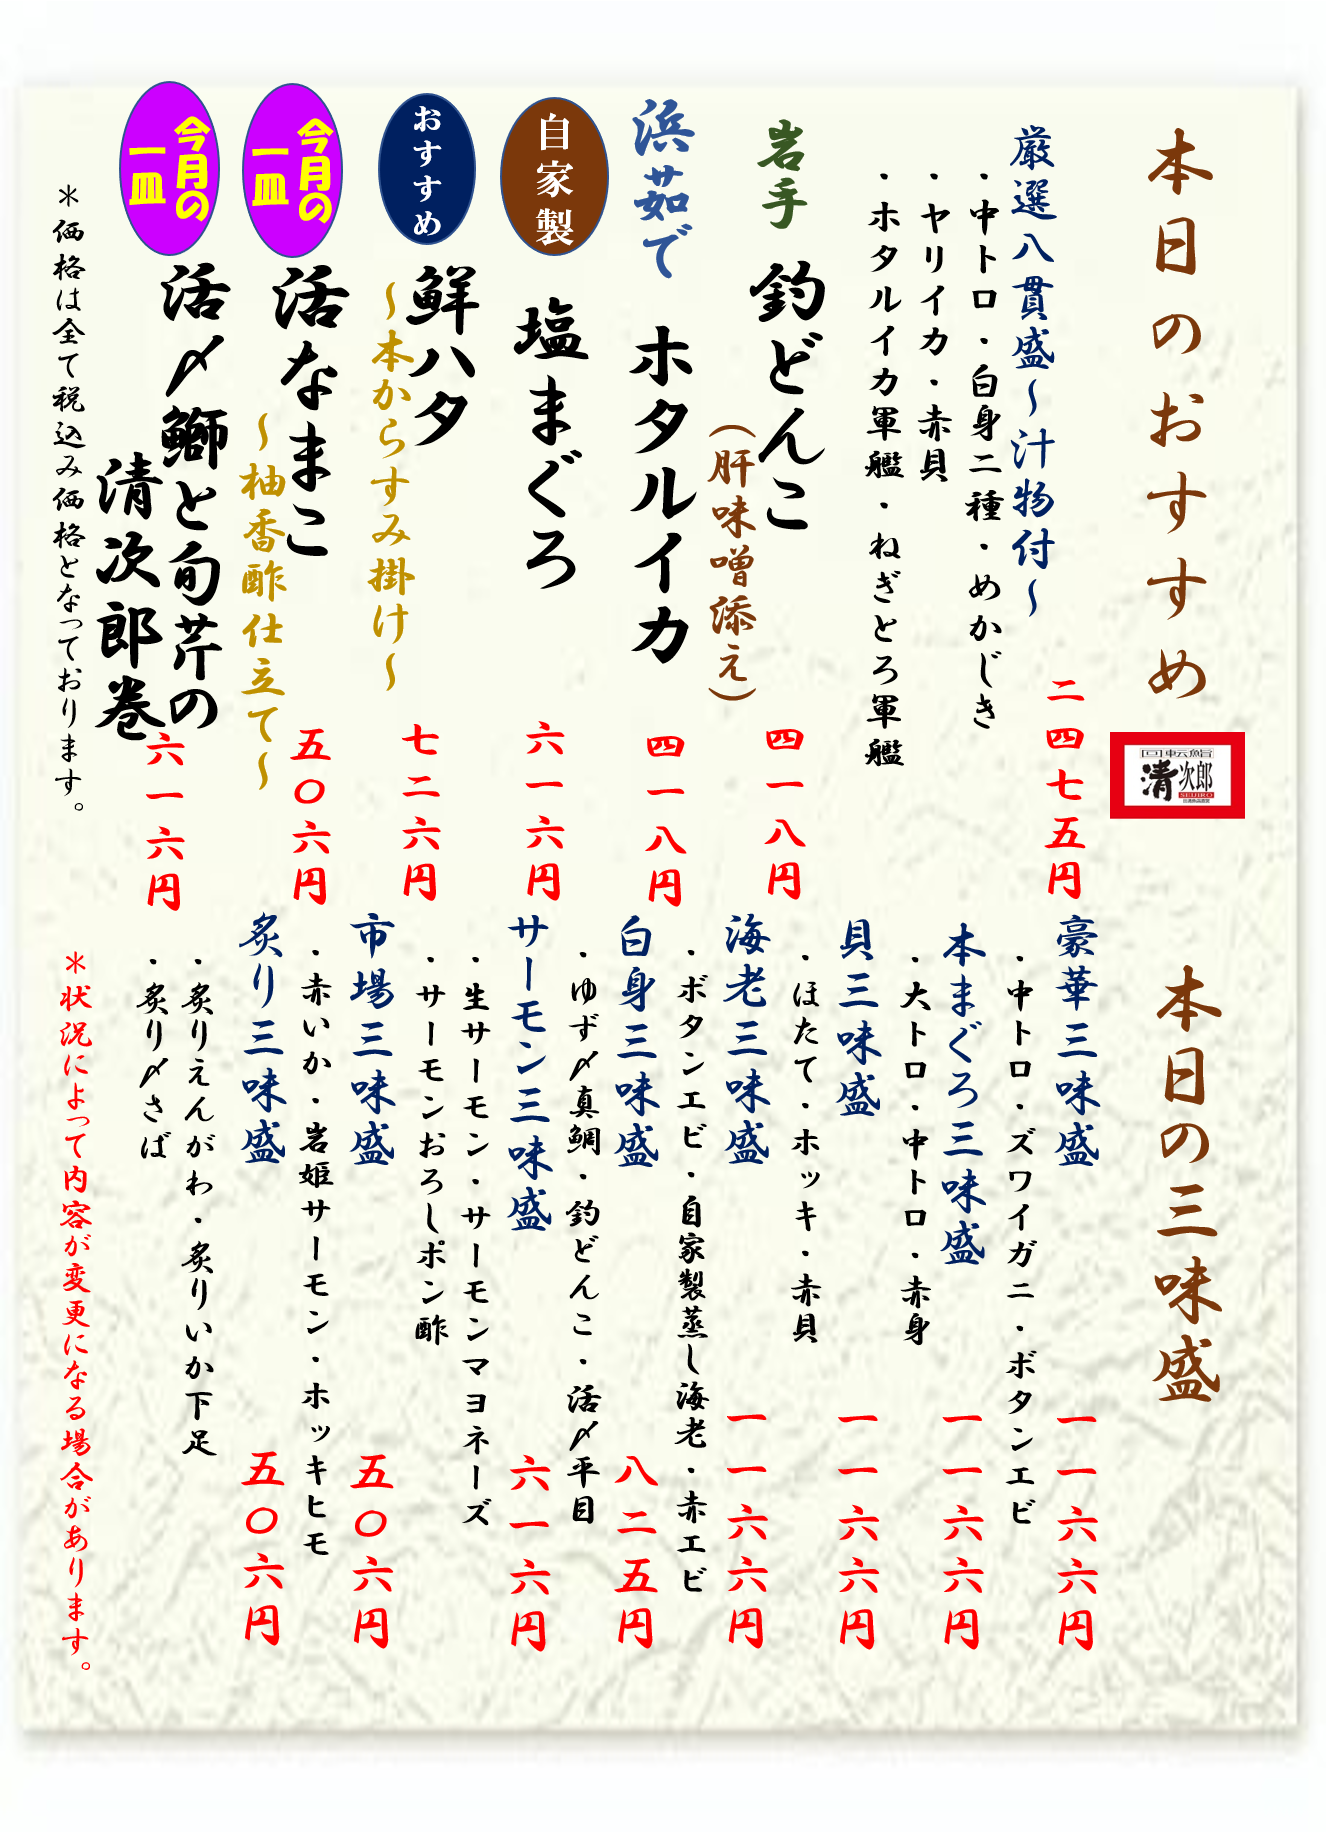 本日のおすすめ
回転鮨
清次郎
SEIJIRO
厳選八貫盛～汁物付～
・中トロ・白身二種・めかじき
・ヤリイカ・赤貝
・ホタルイカ軍艦・ねぎとろ軍艦
二四七五円
岩手
釣どんこ
（肝味噌添え）
四一八円
浜茹で
ホタルイカ
四一八円
自家製
塩まぐろ
六一六円
おすすめ
鮮ハタ
～本からすみ掛け～
七二六円
今月の
一皿
活なまこ
～柚香酢仕立て～
五〇六円
今月の
一皿
活〆鰤と旬芹の
清次郎巻
六一六円
＊価格は全て税込み価格となっております。
本日の三味盛
豪華三味盛
・中トロ・ズワイガニ・ボタンエビ
一一六六円
本まぐろ三味盛
・大トロ・中トロ・赤身
一一六六円
貝三味盛
・ほたて・ホッキ・赤貝
一一六六円
海老三味盛
・ボタンエビ・自家製蒸し海老・赤エビ
一一六六円
白身三味盛
・ゆず〆真鯛・釣どんこ・活〆平目
八二五円
サーモン三味盛
・生サーモン・サーモンマヨネーズ
・サーモンおろしポン酢
六一六円
市場三味盛
・赤いか・岩姫サーモン・ホッキヒモ
五〇六円
炙り三味盛
・炙りえんがわ・炙りいか下足
・炙り〆さば
五〇六円
＊状況によって内容が変更になる場合があります。